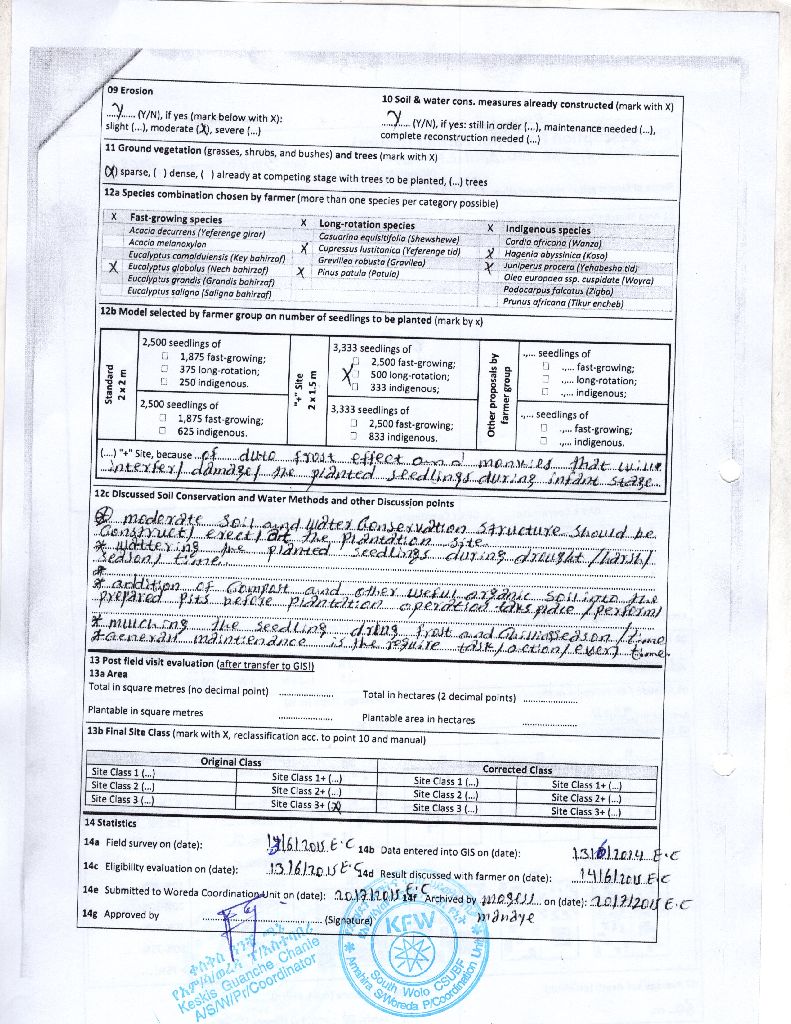 09 Erosion
Y (Y/N), if yes (mark below with X):
slight (...), moderate (X), severe (...)
10 Soil & water cons. measures already constructed (mark with X)
Y (Y/N), if yes: still in order (...), maintenance needed (...),
complete reconstruction needed (...)
11 Ground vegetation (grasses, shrubs, and bushes) and trees (mark with X)
(X) sparse, ( ) dense, ( ) already at competing stage with trees to be planted, (...) trees
12a Species combination chosen by farmer (more than one species per category possible)
X Fast-growing species
Acacia decurrens (Yeferenge girar)
Acacia melanoxylon
Eucalyptus camalduiensis (Key bahirzaf)
X Eucalyptus globolus (Nech bahirzaf)
Eucalyptus grandis (Grandis bahirzaf)
Eucalyptus saligna (Saligna bahirzaf)
X Long-rotation species
Casuarina equisitifolia (Shewshewe)
X Cupressus lustitanica (Yeferenge tid)
Grevillea robusta (Gravilea)
X Pinus patula (Patula)
X Indigenous species
Cordia africana (Wanza)
X Hagenia abyssinica (Koso)
X Juniperus procera (Yehabesha tid)
Olea europaea ssp. cuspidate (Woyra)
Podocarpus falcatus (Zigba)
Prunus africana (Tikur encheb)
12b Model selected by farmer group on number of seedlings to be planted (mark by x)
Standard
2 x 2 m
2,500 seedlings of
1,875 fast-growing;
375 long-rotation;
250 indigenous.
2,500 seedlings of
1,875 fast-growing;
625 indigenous.
"+" Site
2 x 1.5 m
3,333 seedlings of
2,500 fast-growing;
X 500 long-rotation;
333 indigenous;
3,333 seedlings of
2,500 fast-growing;
833 indigenous.
Other proposals by
farmer group
.,... seedlings of
.,... fast-growing;
.,... long-rotation;
.,... indigenous;
.,... seedlings of
.,... fast-growing;
.,... indigenous.
(....) "+" Site, because of frost effect and monkies that
interfer/ damage/ the planted seedlings during infant stage
12c Discussed Soil Conservation and Water Methods and other Discussion points
moderate soil and water conservation structure should be
construct/ erect/ at the plantation site
* wattering the planted seedlings during drought /harsh/
season/ time
*
* addition of compost and other useful organic soil into the
prepared pits before plantation operation taks place / perform/
* mulching the seedling frost and season/time
* General maintienance is the require task/action/every time
13 Post field visit evaluation (after transfer to GIS!)
13a Area
Total in square metres (no decimal point) ..................
Total in hectares (2 decimal points) ..................
Plantable in square metres ..................
Plantable area in hectares ..................
13b Final Site Class (mark with X, reclassification acc. to point 10 and manual)
Original Class
Corrected Class
Site Class 1 (...) Site Class 1+ (...) Site Class 1 (...) Site Class 1+ (...)
Site Class 2 (...) Site Class 2+ (...) Site Class 2 (...) Site Class 2+ (...)
Site Class 3 (...) Site Class 3+ (X) Site Class 3 (...) Site Class 3+ (...)
14 Statistics
14a Field survey on (date): /6/2015 E.C 14b Data entered into GIS on (date): 13/6/2014 E.C
14c Eligibility evaluation on (date): 13/6/2015 E.C 14d Result discussed with farmer on (date): 14/6/2015 E.C
14e Submitted to Woreda Coordination Unit on (date): 20/7/2015 E.C 14f Archived by on (date): 20/7/2015 E.C
manaye
14g Approved by (Signature)
KFW
South Wolo CSUBF
Amahira S/Woreda P/Coordination Unit
Keskis Guanche Chanie
A/S/W/Pr/Coordinator